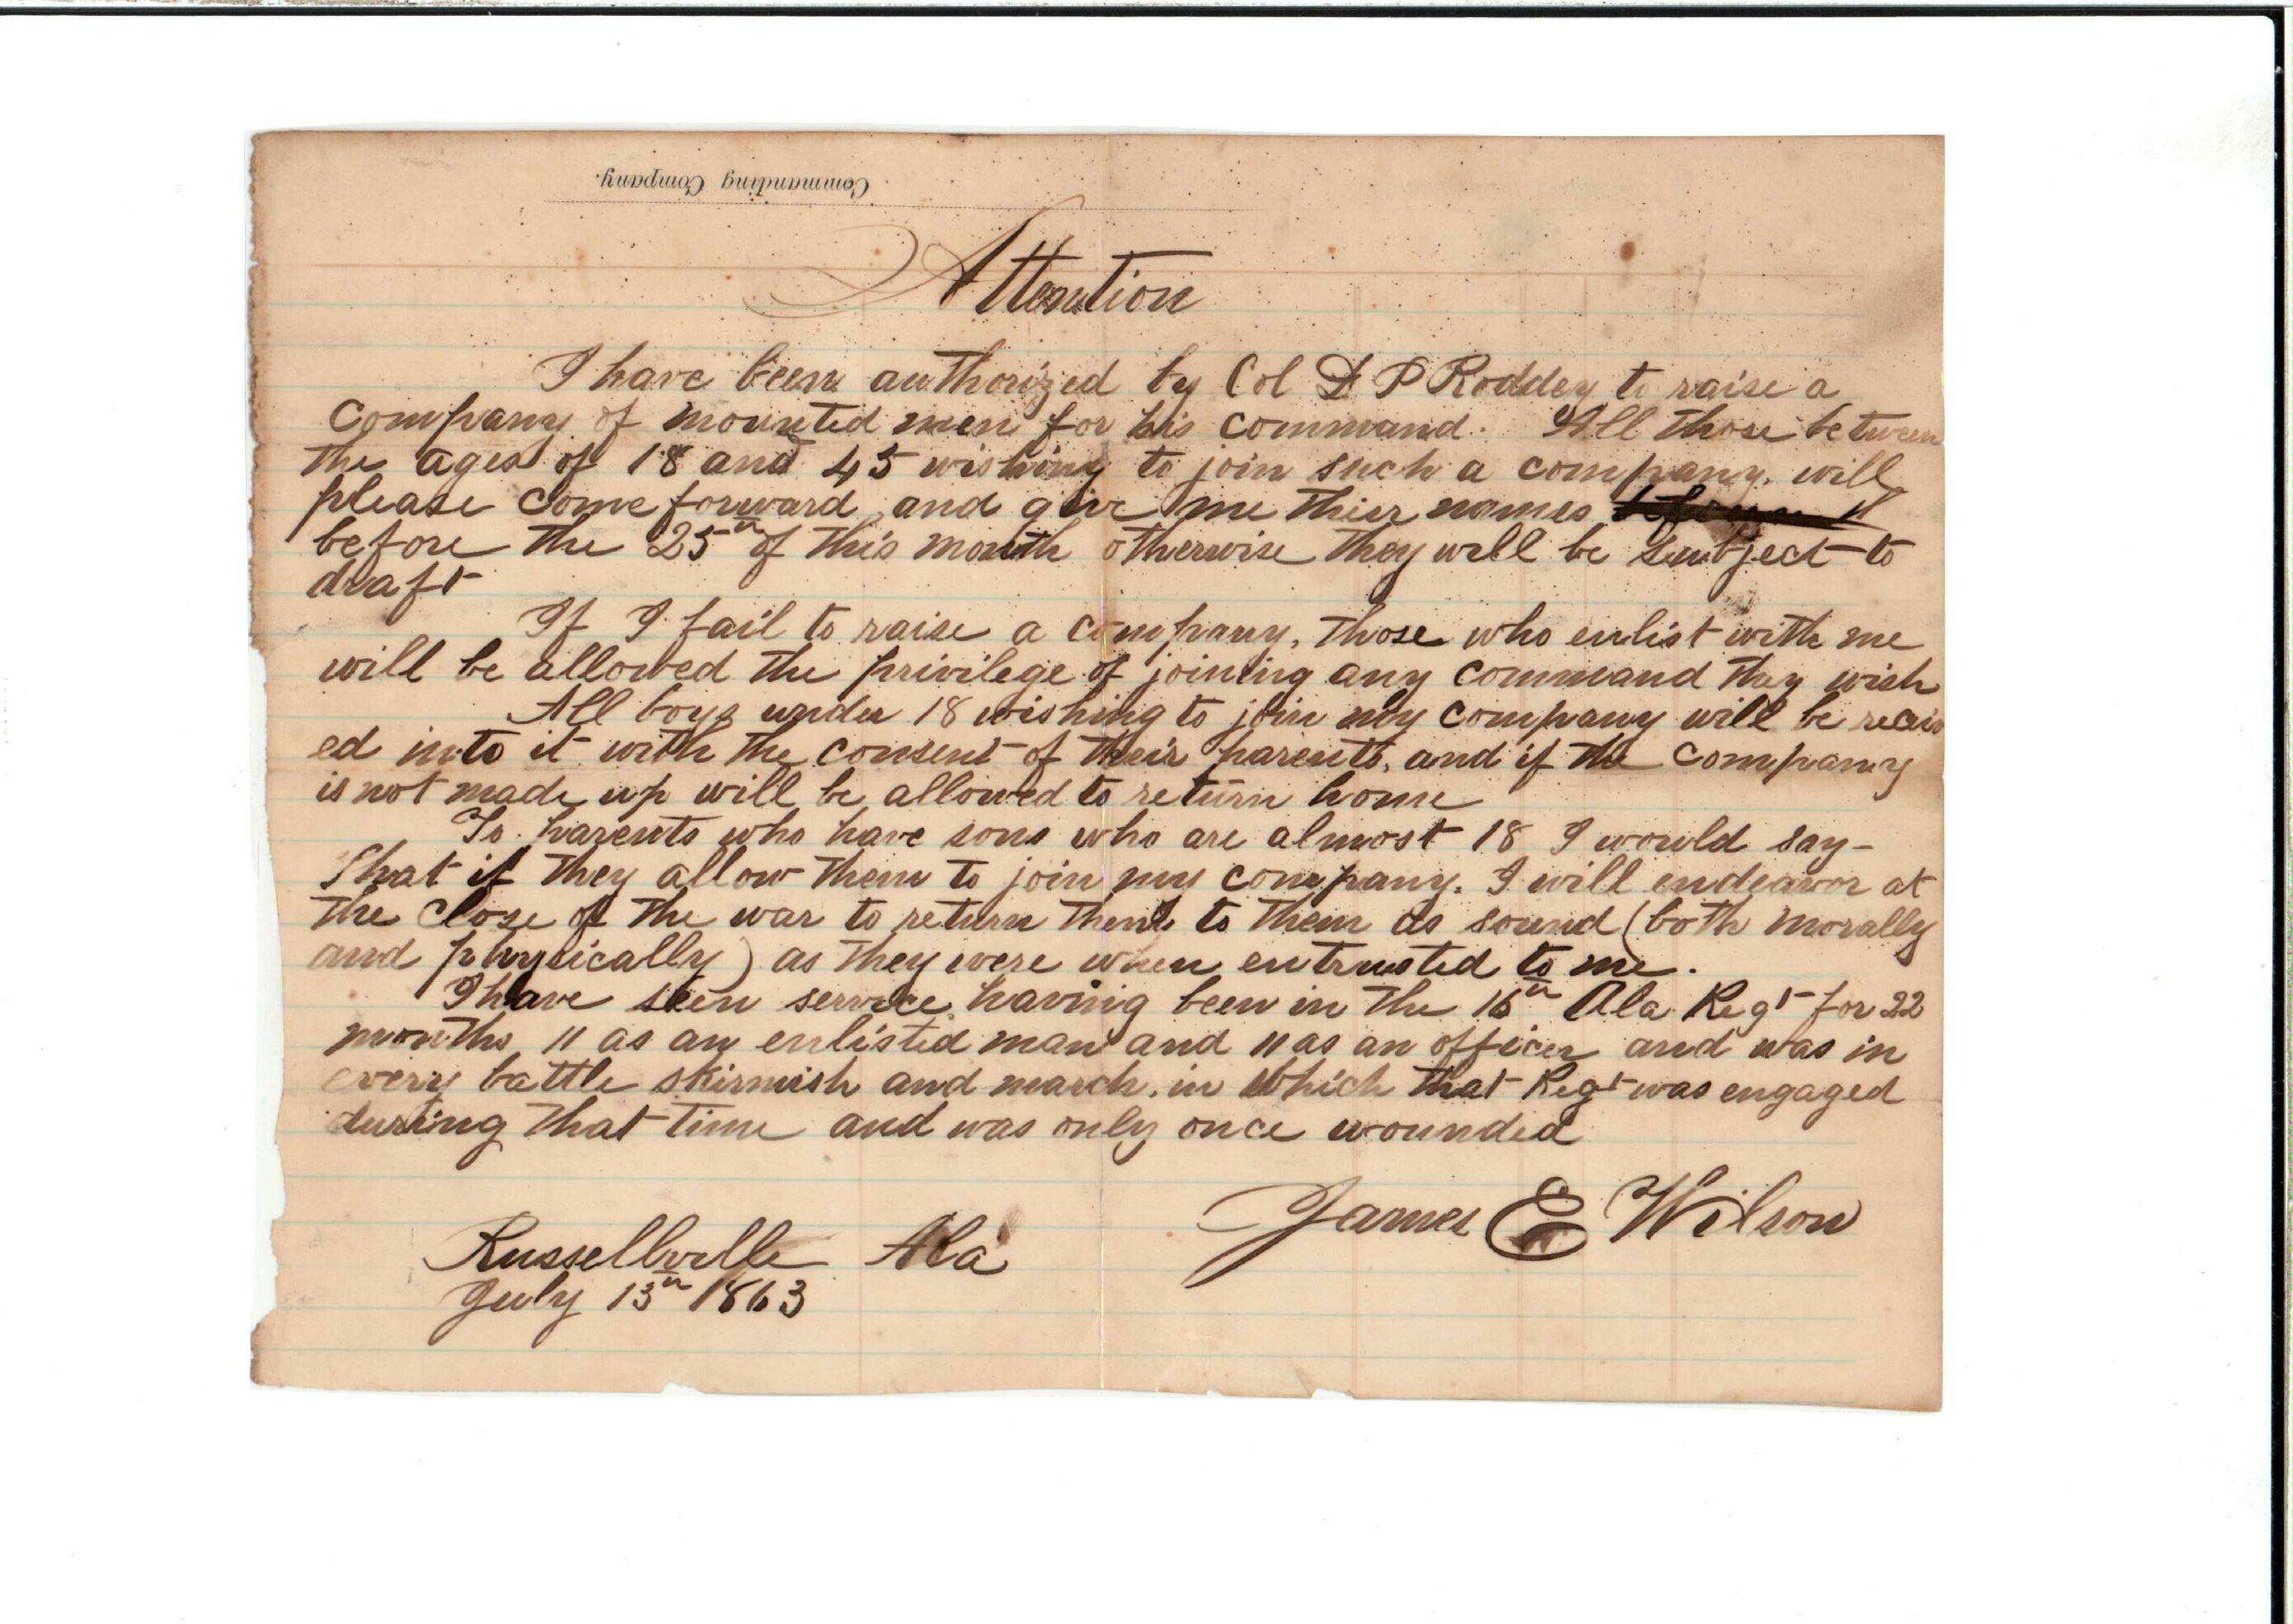 Commanding Company.
Attention
I have been authorized by Col P Roddey to raise a
company of mounted men for his command. All those between
the ages of 18 and 45 wishing to join such a company. will
please come forward and give me thier names
before the 25th of this month otherwise they will be subject to
draft
If I fail to raise a company, those who enlist with me
will be allowed the privilege of joining any command they wish
All boys under 18 wishing to join my company will be receiv
ed into it with the consent of their parents, and if the company
is not made up will be allowed to return home
To parents who have sons who are almost 18 I would say-
That if they allow them to join my company. I will endeavor at
the close of the war to return them to them as sound (both morally
and physically) as they were when entrusted to me.
I have seen service having been in the 16th Ala Regt for 22
months 11 as an enlisted man and 11 as an officer and was in
every battle skirmish and march. in which that Regt was engaged
during that time and was only once wounded
James E Wilson
Russellville Ala
July 13th 1863